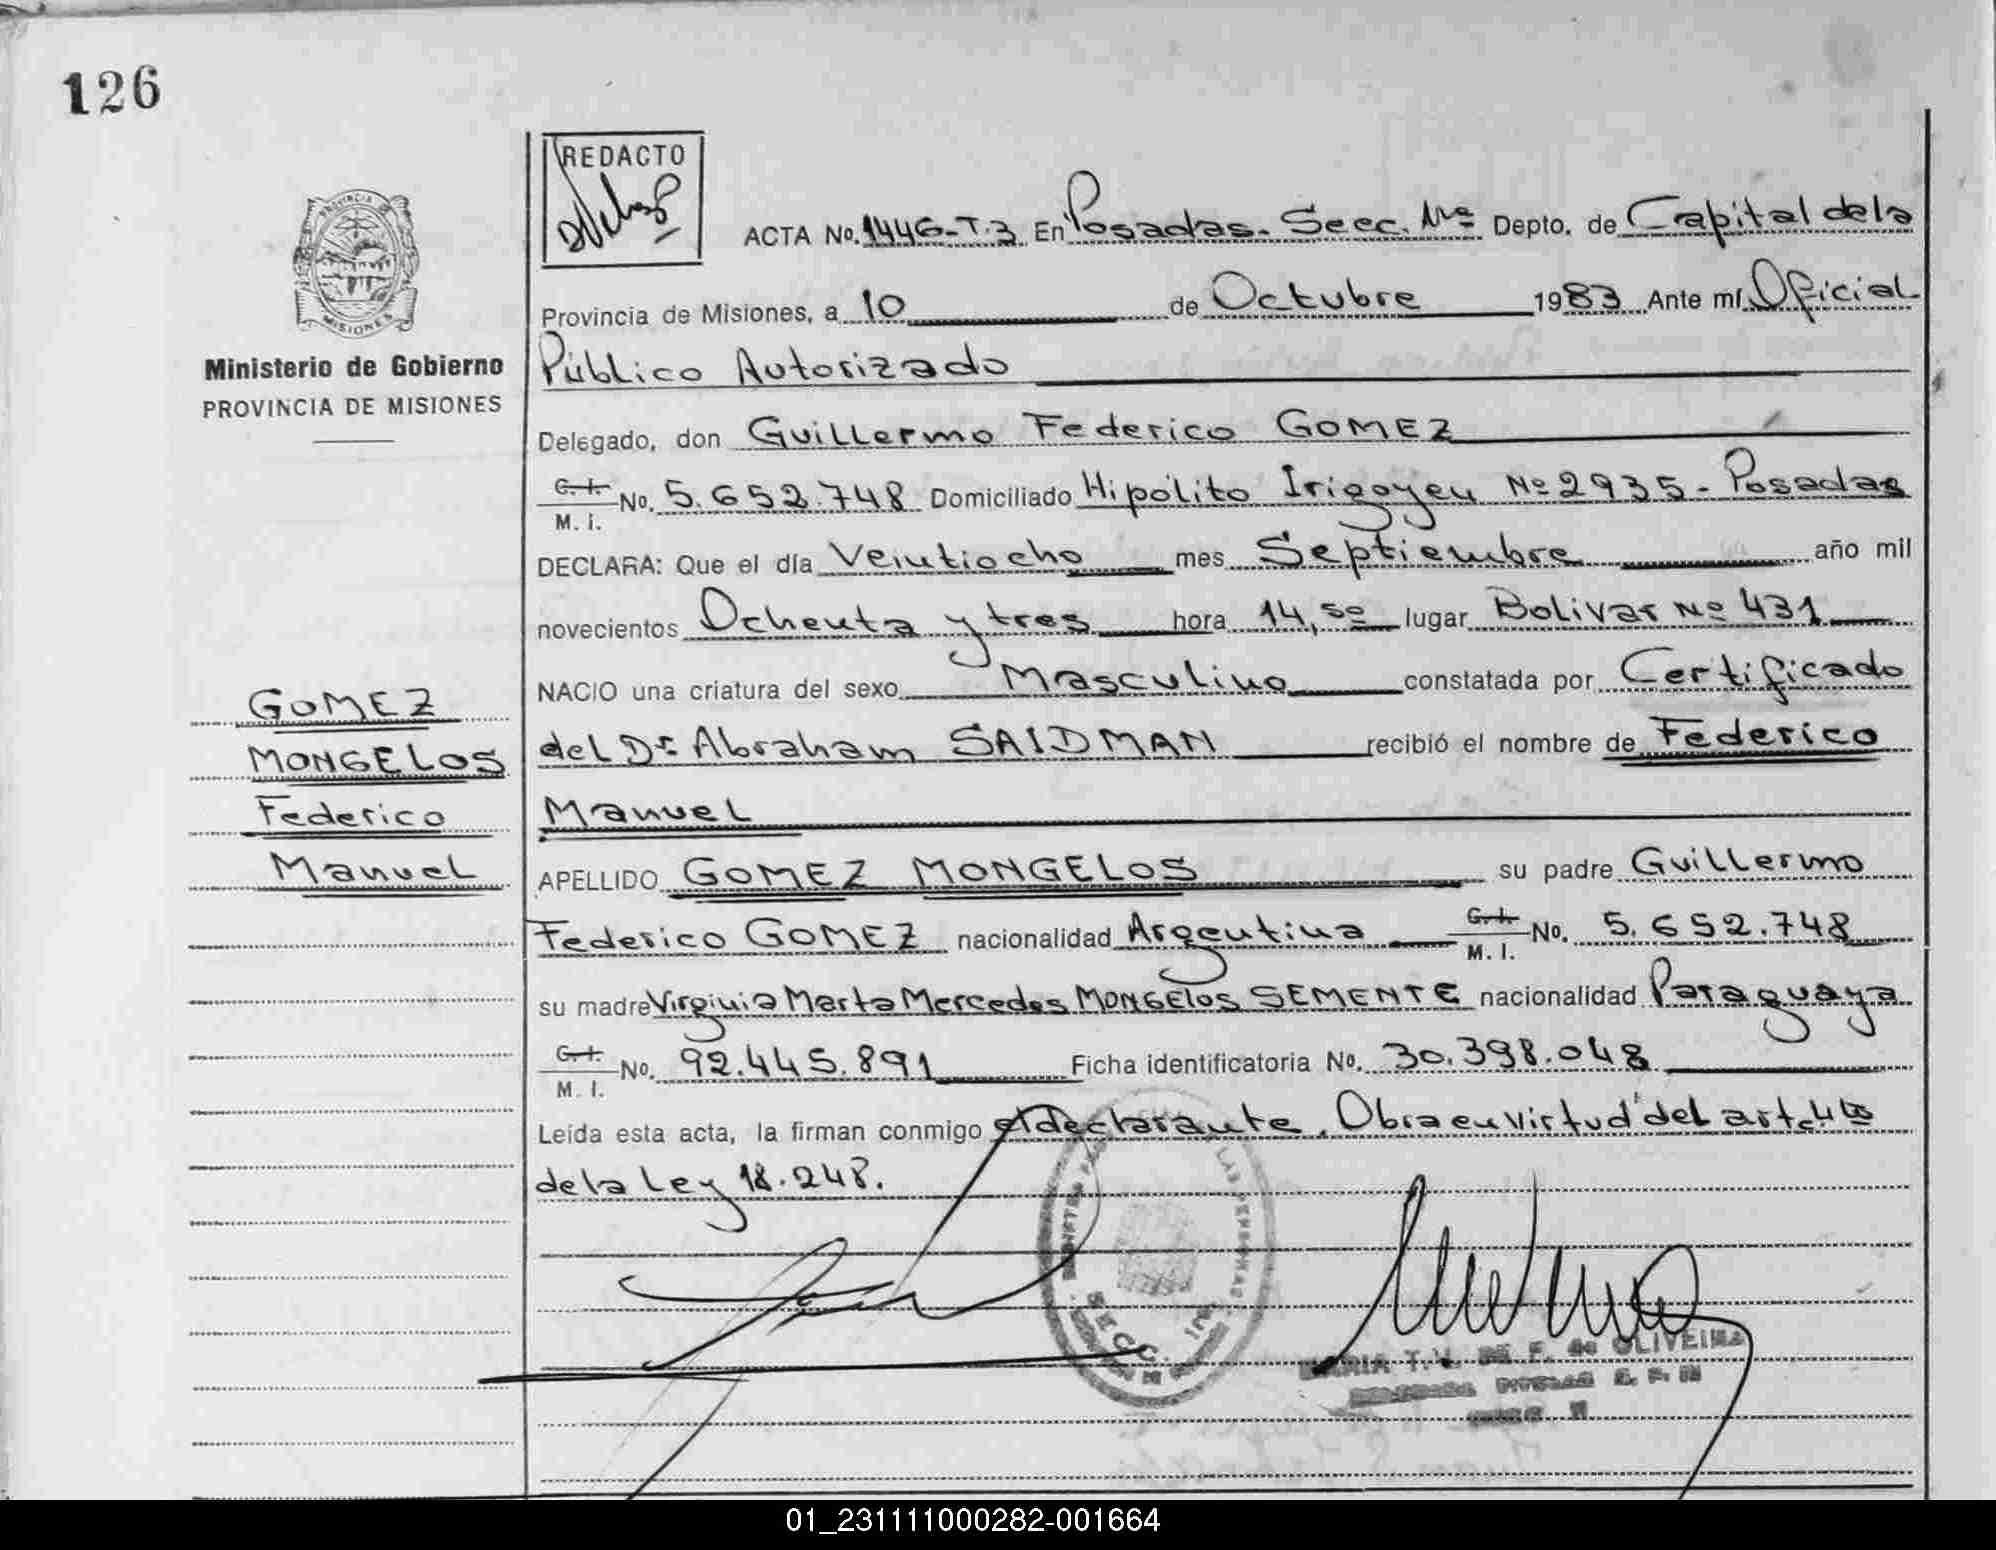 126
REDACTO
PROVINCIA DE
MISIONES
Ministerio de Gobierno
PROVINCIA DE MISIONES
ACTA No. 1446-T.3 En Posadas. Secc. Depto. de Capital de la
Provincia de Misiones, a 10 de Octubre 1983 Ante mí Oficial
Público Autorizado
Delegado, don Guillermo Federico GOMEZ
C. I.
M. I. No. 5.652.748 Domiciliado Hipólito Irigoyen Nº 2935 - Posadas
DECLARA: Que el día Veintiocho mes Septiembre año mil
novecientos Ochenta y tres hora 14,50 lugar Bolivar Nº 431
NACIO una criatura del sexo Masculino constatada por Certificado
del Dr. Abraham SAIDMAN recibió el nombre de Federico
Manuel
APELLIDO GOMEZ MONGELOS su padre Guillermo
Federico GOMEZ nacionalidad Argentina C. I. M. I. No. 5.652.748
su madre Virginia Marta Mercedes MONGELOS SEMENTE nacionalidad Paraguaya
C. I.
M. I. No. 92.445.891 Ficha identificatoria No. 30.398.048
Leída esta acta, la firman conmigo el declarante. Obra en virtud del art.
de la Ley 18.248.
GOMEZ
MONGELOS
Federico
Manuel
LAS PERSONAS
SECC.
MARIA T. V. DE F. de OLIVEIRA
01_231111000282-001664